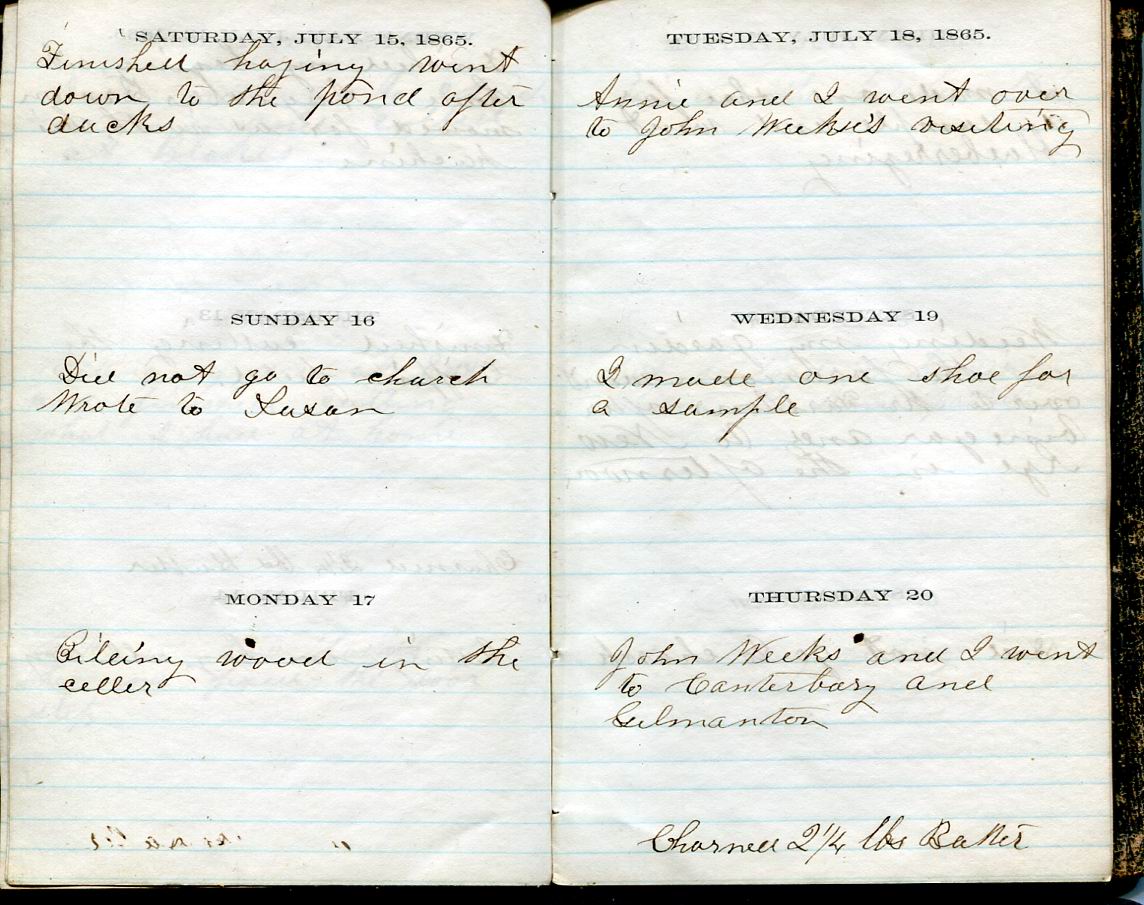 SATURDAY, JULY 15, 1865.
Finished haying went
down to the pond after
ducks
SUNDAY 16
Did not go to church
Wrote to Susan
MONDAY 17
Pileing wood in the
celler
TUESDAY, JULY 18, 1865.
Annie and I went over
to John Weeks's visiting
WEDNESDAY 19
I made one shoe for
a sample
THURSDAY 20
John Weeks and I went
to Canterbury and
Gilmanton
Churned 2 1/4 lbs Butter